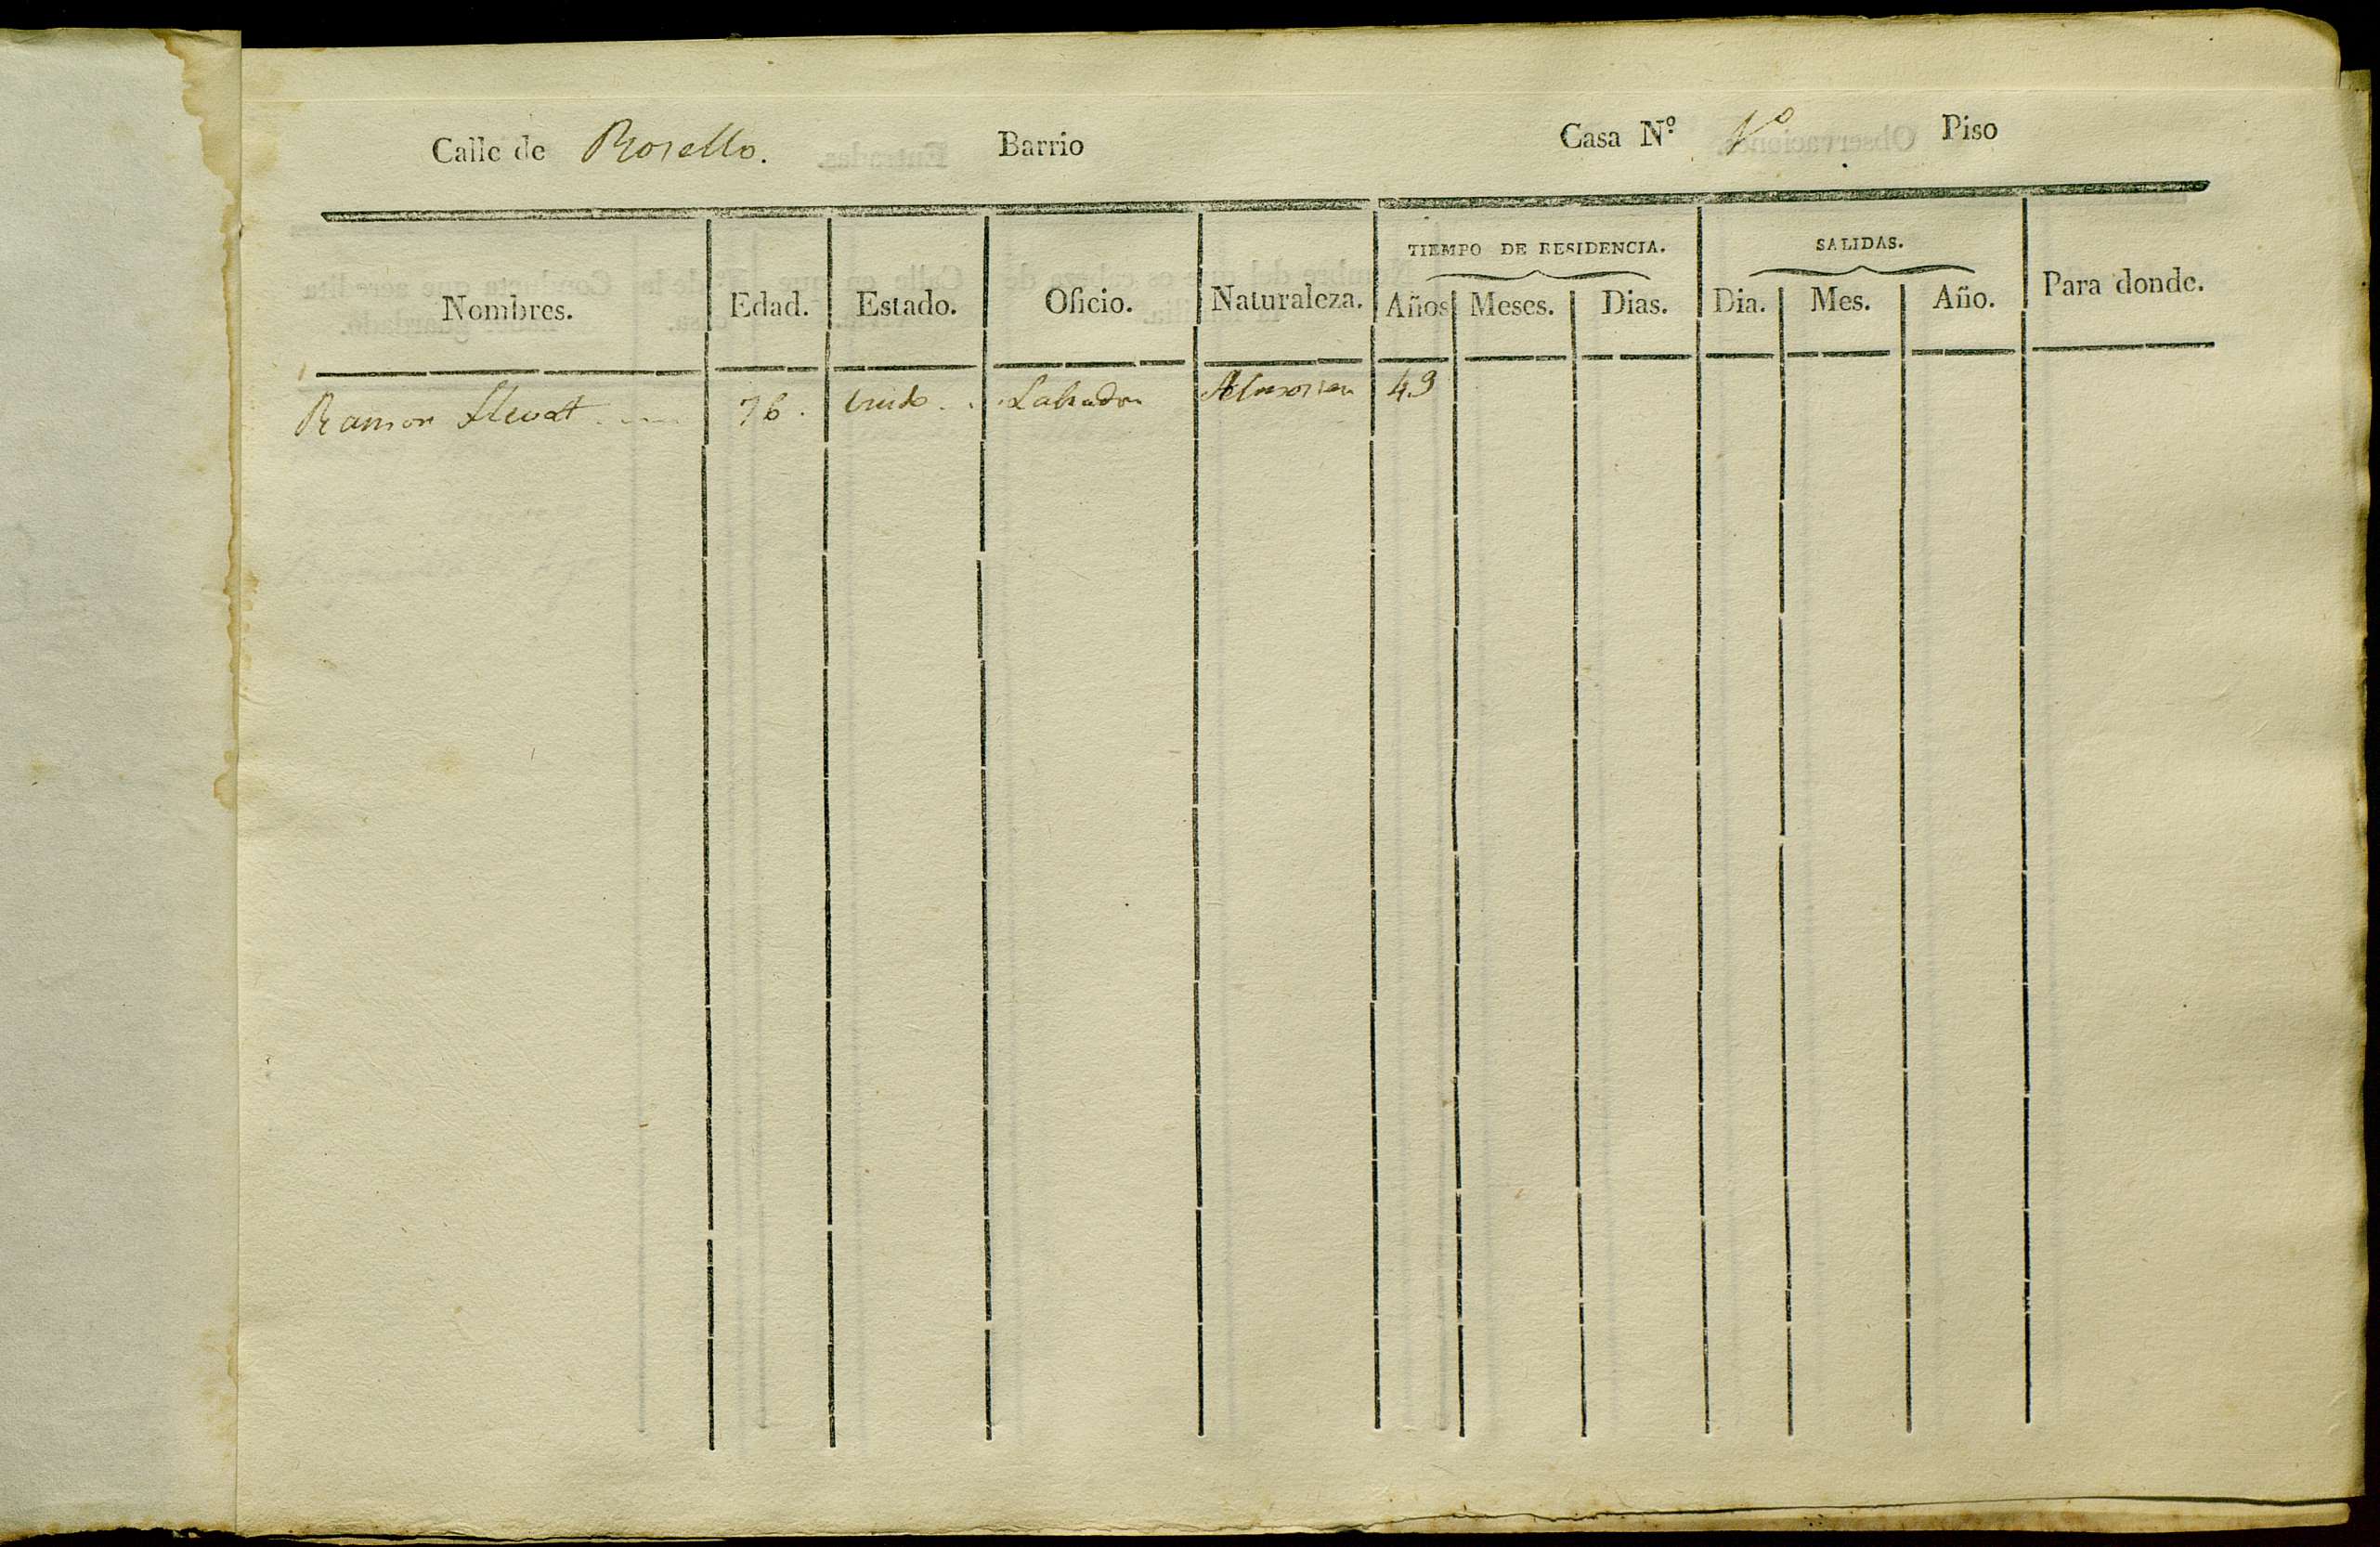 Calle de Rosello. Barrio Casa Nº Nº Piso
TIEMPO DE RESIDENCIA. SALIDAS.
Nombres. Edad. Estado. Oficio. Naturaleza. Años Meses. Dias. Dia. Mes. Año. Para donde.
Ramon Llevat 76. Labrador 49